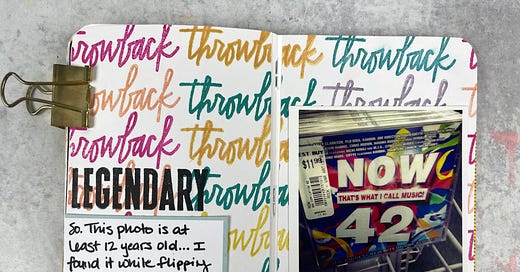 throwback throwback throwback
throwback throwback
throwback throwback
LEGENDARY
So. This photo is at
least 12 years old... I
found it while flipping
EST BUY
$11.99
NOW
THAT'S WHAT I CALL MUSIC!
42